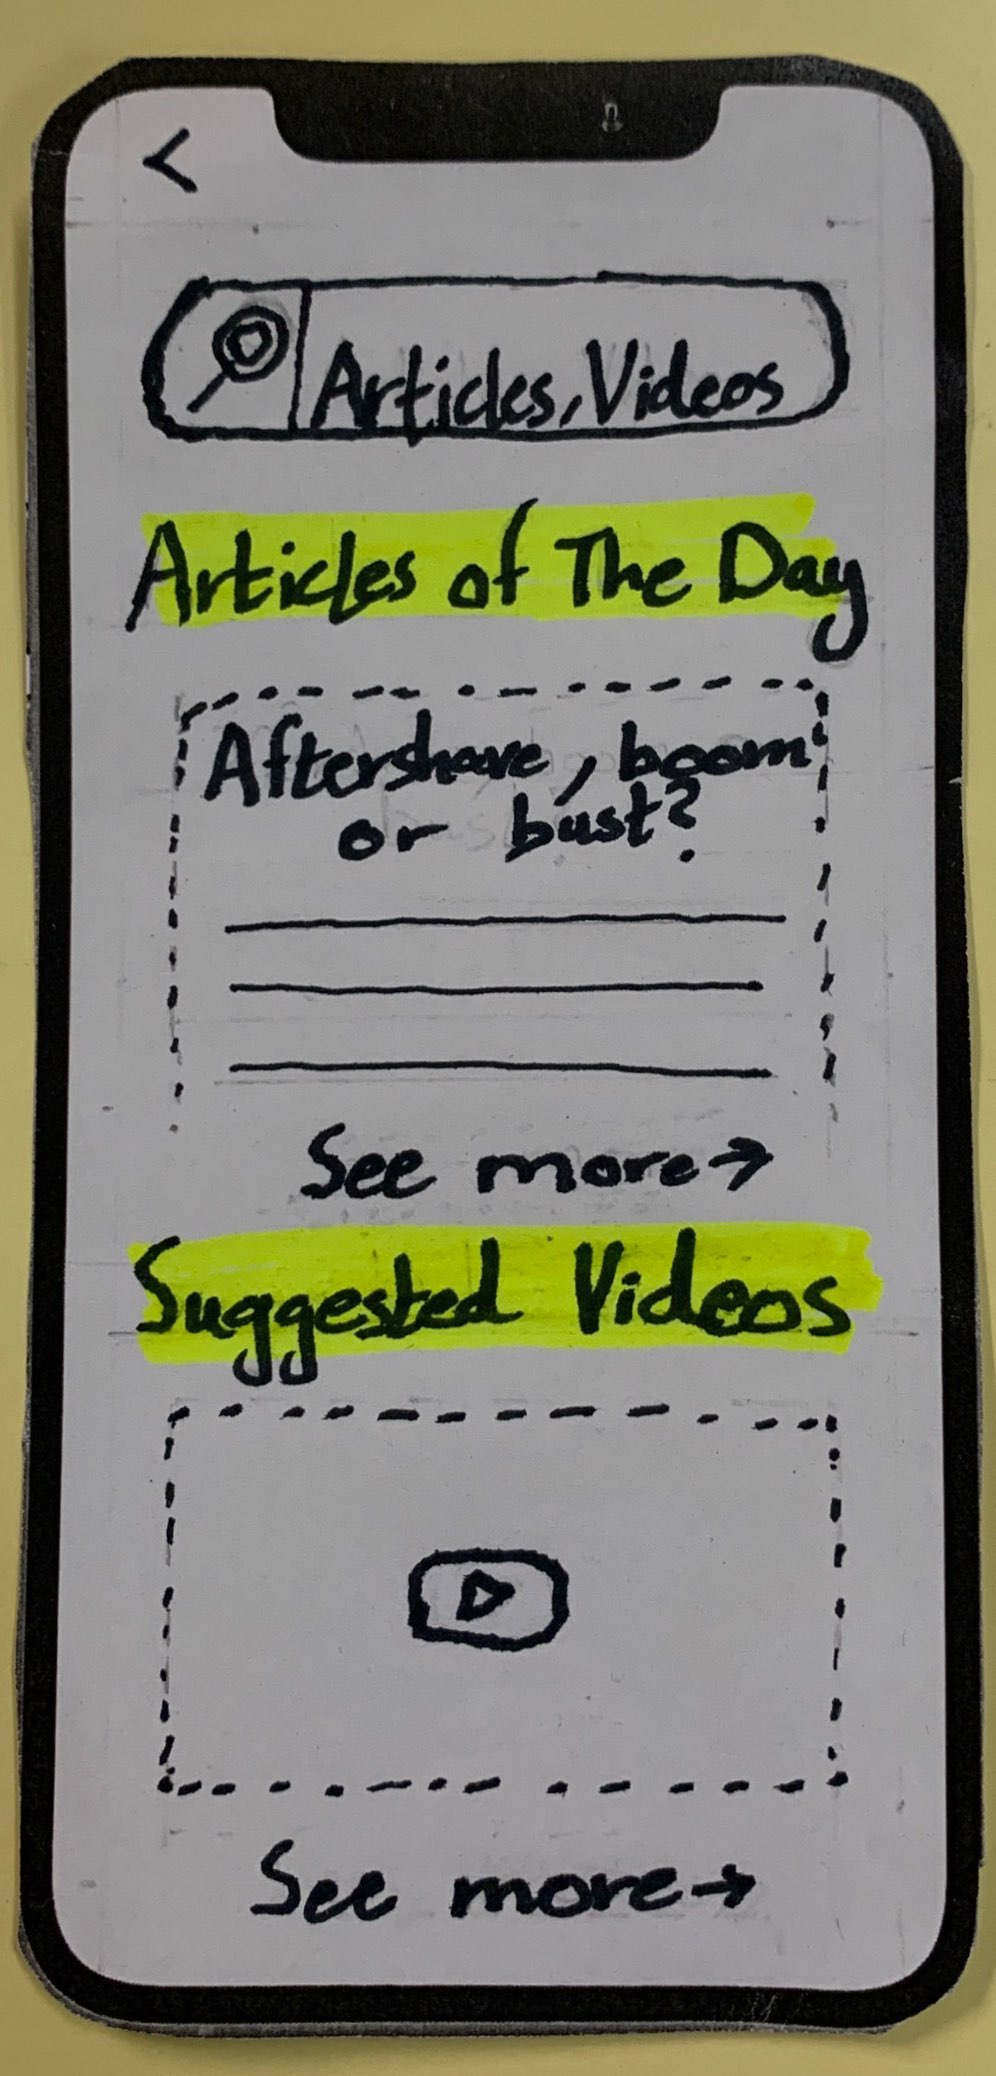 <
Articles, Videos
Articles of The Day
Aftershave, boom
or bust?
See more→
Suggested Videos
See more→